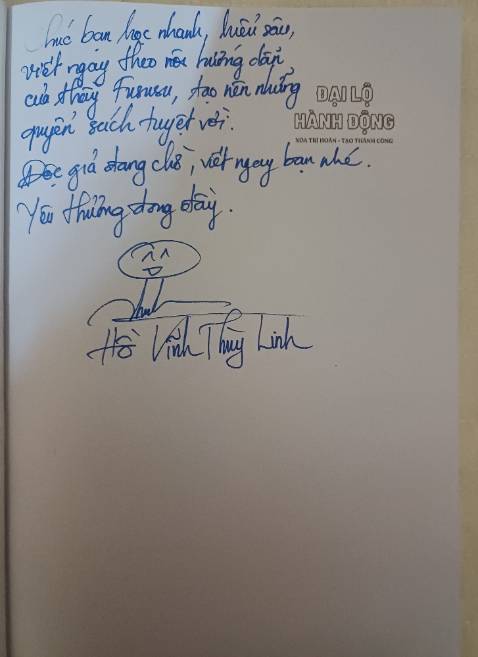 Chúc bạn học nhanh, hiểu sâu,
viết ngay theo nội hướng dẫn
của thầy Fususu, tạo nên những
quyển sách tuyệt vời.
Độc giả đang chờ, viết ngay bạn nhé.
Yêu thương đong đầy.
Hồ Vĩnh Thùy Linh
ĐẠI LỘ
HÀNH ĐỘNG
XÓA TRÌ HOÃN - TẠO THÀNH CÔNG